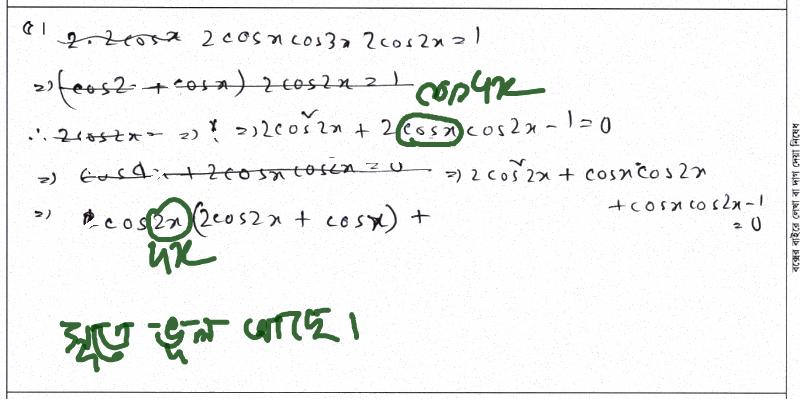 2·2cosx 2cosxcos3x 2cos2x = 1
=> (cos2 + cosx) 2cos2x = 1 cos4x
∴ 2cos2x = => => 2cos²2x + 2cosx cos2x - 1 = 0
=> + 2cosxcos2x = 0 => 2cos²2x + cosxcos2x
+ cosxcos2x - 1 = 0
=> cos2x (2cos2x + cosx) +
4x
সূত্রে ভুল আছে।
বক্সের বাইরে লেখা বা দাগ দেয়া নিষেধ